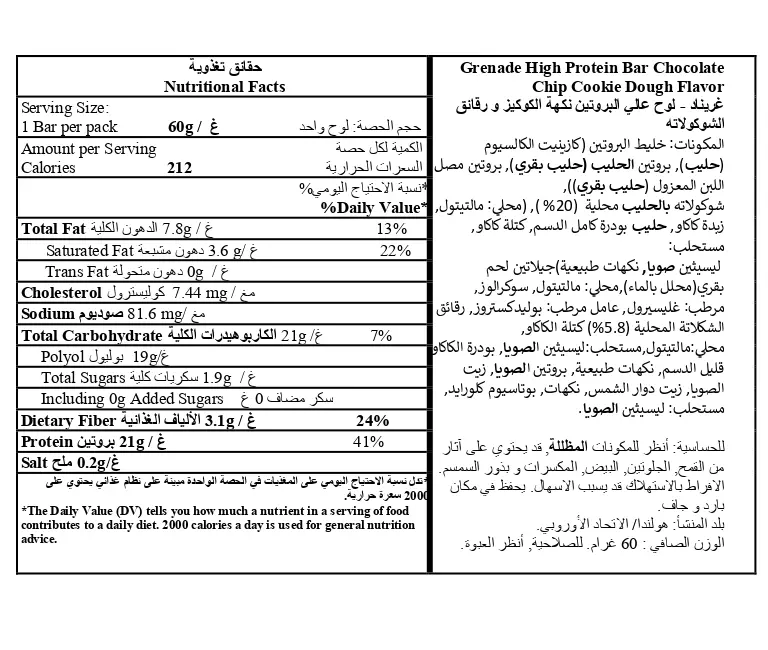 حقائق تغذوية
Nutritional Facts
Serving Size:
1 Bar per pack 60g / غ حجم الحصة: لوح واحد
Amount per Serving الكمية لكل حصة
Calories 212 السعرات الحرارية
*نسبة الاحتياج اليومي%
%Daily Value*
Total Fat الدهون الكلية 7.8g / غ 13%
Saturated Fat دهون متشبعة 3.6 g/ غ 22%
Trans Fat دهون متحولة 0g / غ
Cholesterol كوليسترول 7.44 mg / مغ
Sodium صوديوم 81.6 mg/ مغ
Total Carbohydrate الكاربوهيدرات الكلية 21g /غ 7%
Polyol بوليول 19g/غ
Total Sugars سكريات كلية 1.9g / غ
Including 0g Added Sugars سكر مضاف 0 غ
Dietary Fiber الألياف الغذائية 3.1g / غ 24%
Protein بروتين 21g / غ 41%
Salt ملح 0.2g/غ
*تدل نسبة الاحتياج اليومي على المغذيات في الحصة الواحدة مبينة على نظام غذائي يحتوي على
2000 سعرة حرارية.
*The Daily Value (DV) tells you how much a nutrient in a serving of food
contributes to a daily diet. 2000 calories a day is used for general nutrition
advice.
Grenade High Protein Bar Chocolate
Chip Cookie Dough Flavor
غريناد - لوح عالي البروتين نكهة الكوكيز و رقائق
الشوكولاته
المكونات: خليط البروتين (كازينيت الكالسيوم
(حليب), بروتين الحليب (حليب بقري), بروتين مصل
اللبن المعزول (حليب بقري)),
شوكولاته بالحليب محلية (20% ), (محلي: مالتيتول,
زبدة كاكاو, حليب بودرة كامل الدسم, كتلة كاكاو,
مستحلب:
ليسيثين صويا, نكهات طبيعية)جيلاتين لحم
بقري(محلل بالماء),محلي: مالتيتول, سوكرالوز,
مرطب: غليسيرول, عامل مرطب: بوليدكستروز, رقائق
الشكلاتة المحلية (5.8%) كتلة الكاكاو,
محلي:مالتيتول,مستحلب:ليسيثين الصويا, بودرة الكاكاو
قليل الدسم, نكهات طبيعية, بروتين الصويا, زيت
الصويا, زيت دوار الشمس, نكهات, بوتاسيوم كلورايد,
مستحلب: ليسيثين الصويا.
للحساسية: أنظر للمكونات المظللة, قد يحتوي على آثار
من القمح, الجلوتين, البيض, المكسرات و بذور السمسم.
الافراط بالاستهلاك قد يسبب الاسهال. يحفظ في مكان
بارد و جاف.
بلد المنشأ: هولندا/ الاتحاد الأوروبي.
الوزن الصافي : 60 غرام. للصلاحية, أنظر العبوة.